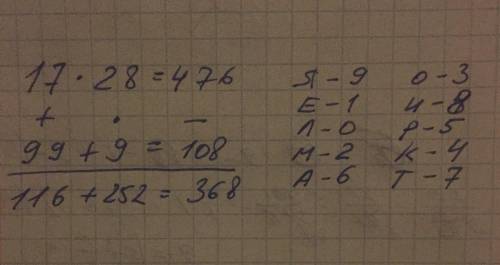 17 · 28 = 476
+ · −
99 + 9 = 108
116 + 252 = 368
Я - 9
Е - 1
Л - 0
М - 2
А - 6
О - 3
И - 8
Р - 5
К - 4
Т - 7